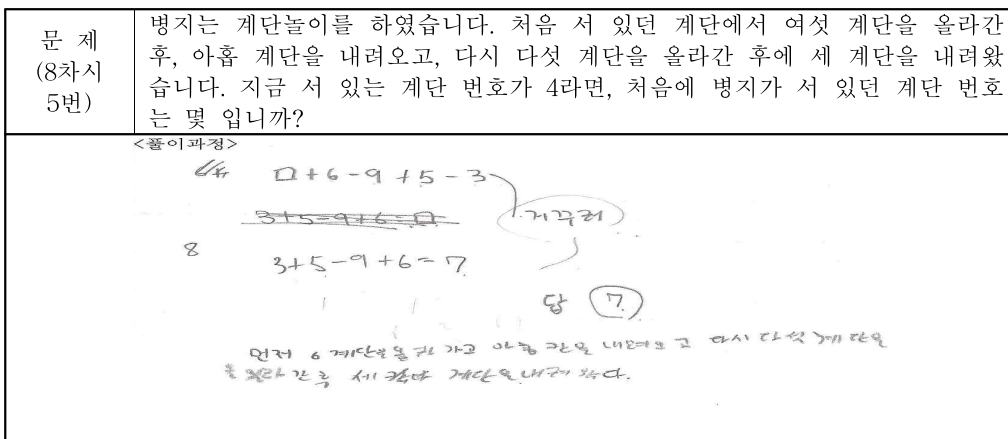 문 제
(8차시
5번)
병지는 계단놀이를 하였습니다. 처음 서 있던 계단에서 여섯 계단을 올라간
후, 아홉 계단을 내려오고, 다시 다섯 계단을 올라간 후에 세 계단을 내려왔
습니다. 지금 서 있는 계단 번호가 4라면, 처음에 병지가 서 있던 계단 번호
는 몇 입니까?
<풀이과정>
□+6-9+5-3
3+5-9+6=□
거꾸러
8
3+5-9+6=7
답 7
먼저 6계단을 올라 가고 아홉 칸을 내려오고 다시 다섯 계단을
올라 간 후 세 계단을 내려 왔다.